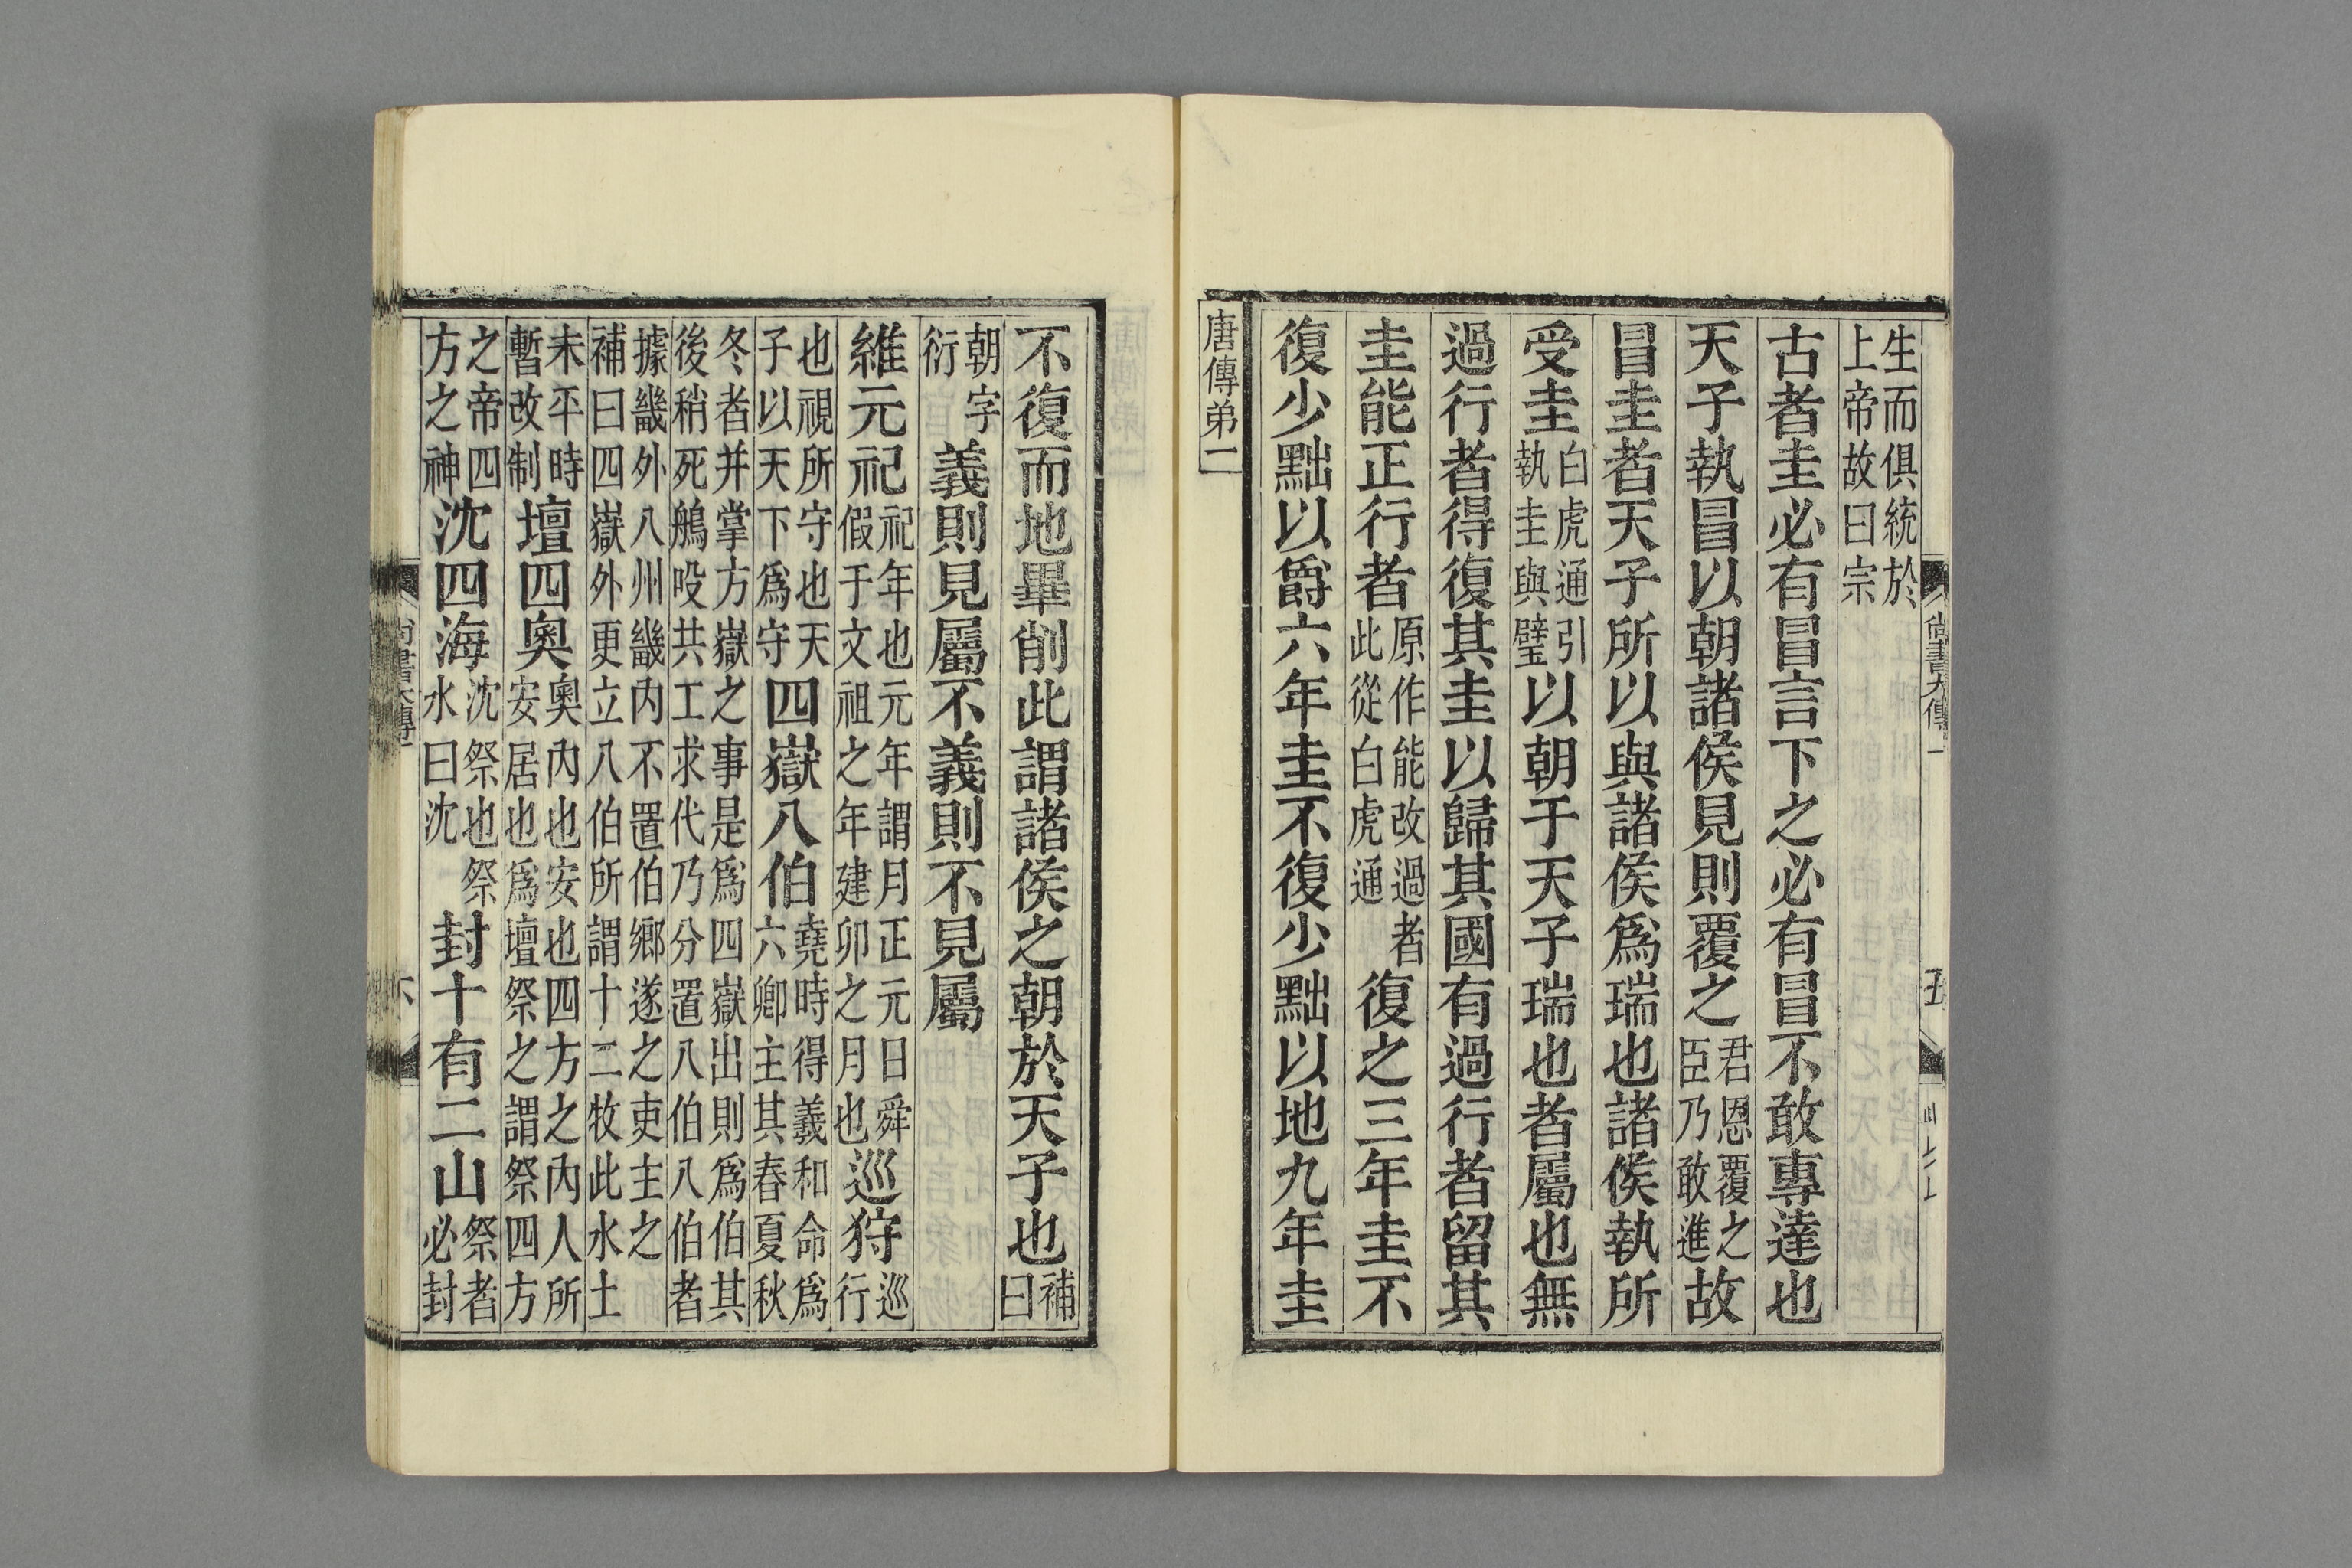 生而俱統於
上帝故曰宗
古者圭必有冒言下之必有冒不敢專達也
天子執冒以朝諸侯見則覆之君恩覆之臣乃敢進故
冒圭者天子所以與諸侯爲瑞也諸侯執所
受圭白虎通引執圭與璧以朝于天子瑞也者屬也無
過行者得復其圭以歸其國有過行者留其
圭能正行者原作能改過者此從白虎通復之三年圭不
復少黜以爵六年圭不復少黜以地九年圭
唐傳弟二
尙書大傳一
五
不復而地畢削此謂諸侯之朝於天子也補曰
朝字衍義則見屬不義則不見屬
維元祀祀年也元年謂月正元日舜假于文祖之年建卯之月也巡狩巡行
也視所守也天子以天下爲守四嶽八伯堯時得羲和命爲六卿主其春夏秋
冬者并掌方嶽之事是爲四嶽出則爲伯其後稍死鴅吺共工求代乃分置八伯八伯者
據畿外八州畿內不置伯鄉遂之吏主之補曰四嶽外更立八伯所謂十二牧此水土
未平時暫改制壇四奧奧內也安也四方之內人所安居也爲壇祭之謂祭四方
之帝四方之神沈四海沈祭也祭水曰沈封十有二山祭者必封